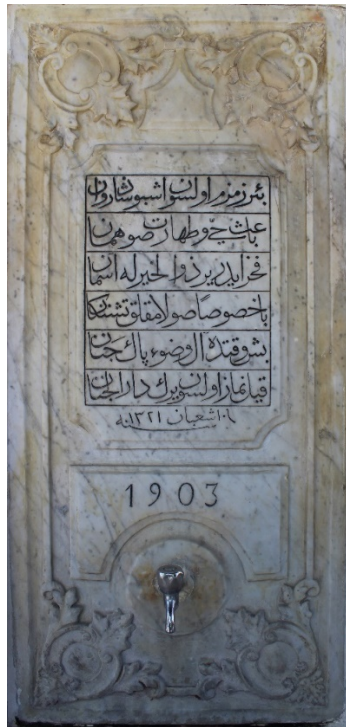 بئر زمزم اولسون اشبو شادروان
باعث حج و طهارت صو همان
فخر ایدر یر ذوالخیر له اسمان
باخصوصا صولامقلق تشنکان
بشو قتده ال وضوء پاك جنان
قیل نماز اولسون یرك دار الجنان
١٠ شعبان ١٣٢١ سنه
1903